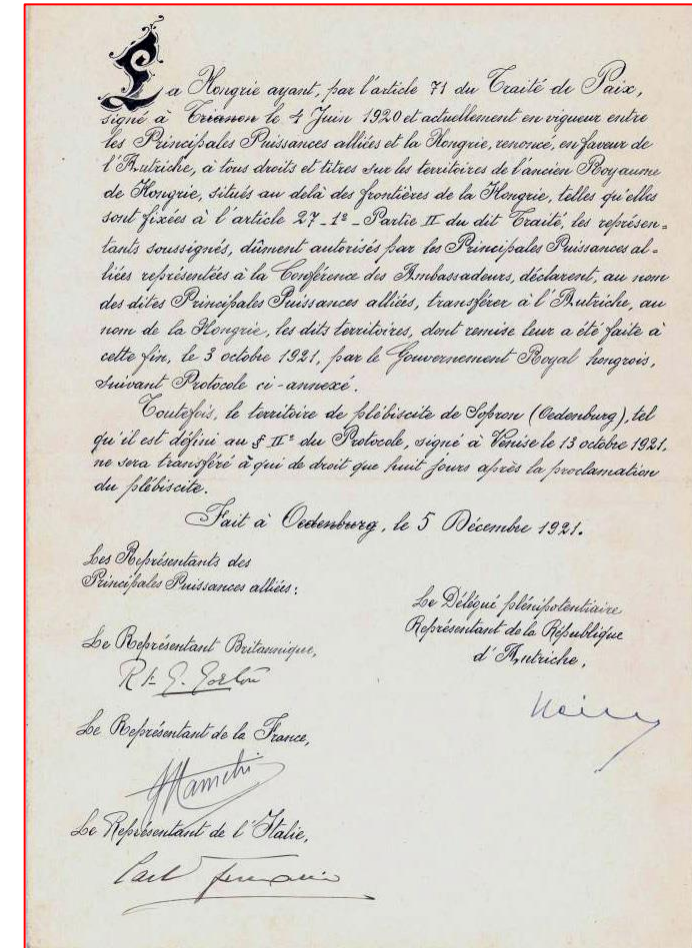 La Hongrie ayant, par l'article 71 du Traité de Paix,
signé à Trianon le 4 Juin 1920 et actuellement en vigueur entre
les Principales Puissances alliées et la Hongrie, renoncé, en faveur de
l'Autriche, à tous droits et titres sur les territoires de l'ancien Royaume
de Hongrie, situés au delà des frontières de la Hongrie, telles qu'elles
sont fixées à l'article 27_1º_Partie II du dit Traité, les représen=
tants soussignés, dûment autorisés par les Principales Puissances al=
liées représentées à la Conférence des Ambassadeurs, déclarent, au nom
des dites Principales Puissances alliées, transférer à l'Autriche, au
nom de la Hongrie, les dits territoires, dont remise leur a été faite à
cette fin, le 3 octobre 1921, par le Gouvernement Royal hongrois,
suivant Protocole ci-annexé.
Toutefois, le territoire de plébiscite de Sopron (Oedenburg), tel
qu'il est défini au § IIº du Protocole, signé à Venise le 13 octobre 1921,
ne sera transféré à qui de droit que huit jours après la proclamation
du plébiscite.
Fait à Oedenburg, le 5 Décembre 1921.
Les Représentants des
Principales Puissances alliées:
Le Représentant Britannique,
Le Représentant de la France,
Le Représentant de l'Italie,
Le Délégué plénipotentiaire
Représentant de la République
d'Autriche,